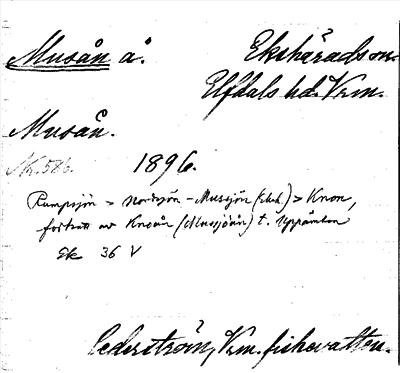 Musån å.
Ekshärads sn.
Elfdals hd. Vrm.
Musån.
N.586. 1896.
Rampsjön > Nordsjön - Mussjön (Eksh.) > Knon,
fortsätt. av Knoån (Mussjöån) t. Uppämten
Ek 36 V
Cederström, Vrm. fiskevatten.